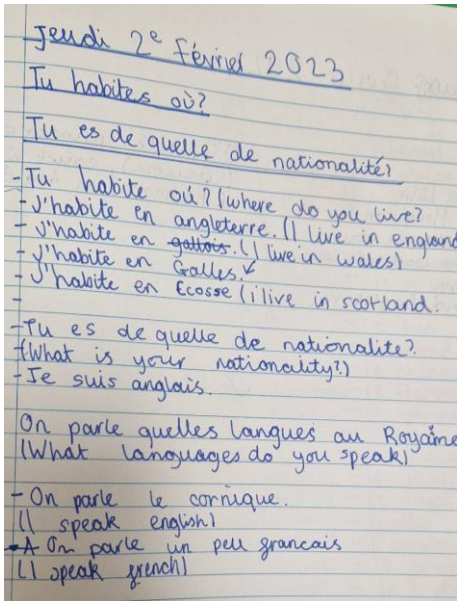 Jeudi 2e Février 2023
Tu habites où?
Tu es de quelle de nationalité?
- Tu habite où? (where do you live?
- J'habite en angleterre. (I live in england
- J'habite en gallois. (I live in wales)
- J'habite en Galles.
- J'habite en Ecosse (i live in scotland.
-
- Tu es de quelle de nationalite?
(What is your nationality?)
- Je suis anglais.
On parle quelles langues au Royaime
(What languages do you speak)
- On parle le cornique.
(I speak english)
- A On parle un peu francais
(I speak french)